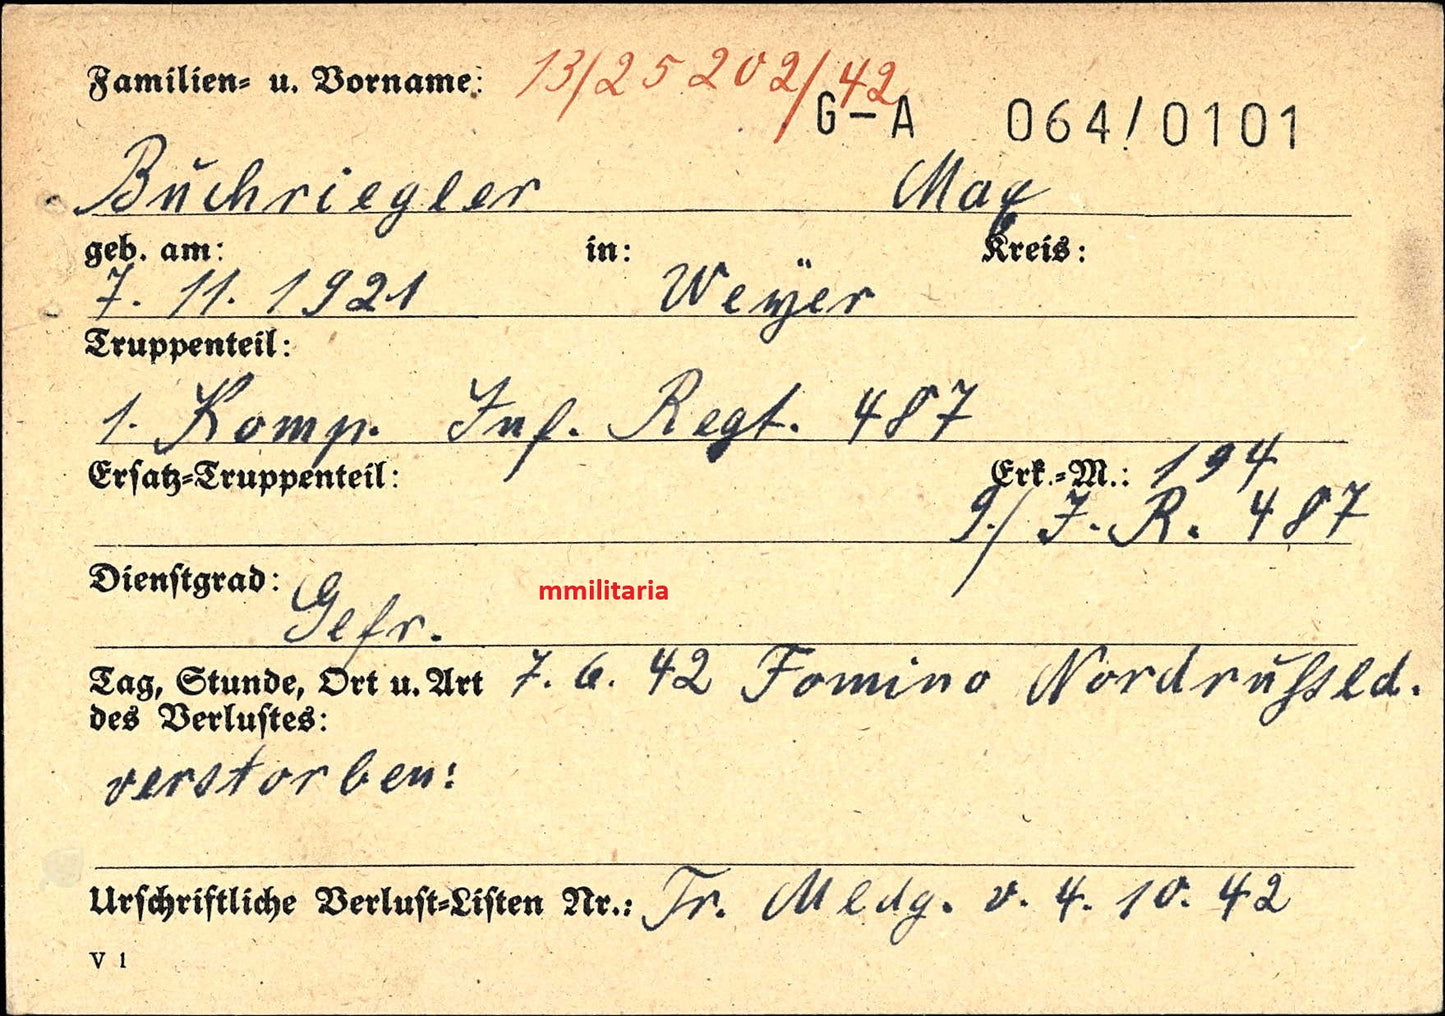 Familien- u. Vorname: 13/25202/42
G-A 064/0101
Buchriegler Max
geb. am: in: Kreis:
7. 11. 1921 Weyer
Truppenteil:
1. Komp. Inf. Regt. 487
Ersatz-Truppenteil: Erk.-M.: 194
9./ I. R. 487
Dienstgrad:
Gefr.
mmilitaria
Tag, Stunde, Ort u. Art 7. 6. 42 Fomino Nordrußld.
des Verlustes:
verstorben!
Urschriftliche Verlust-Listen Nr.: Tr. Meldg. v. 4. 10. 42
V 1